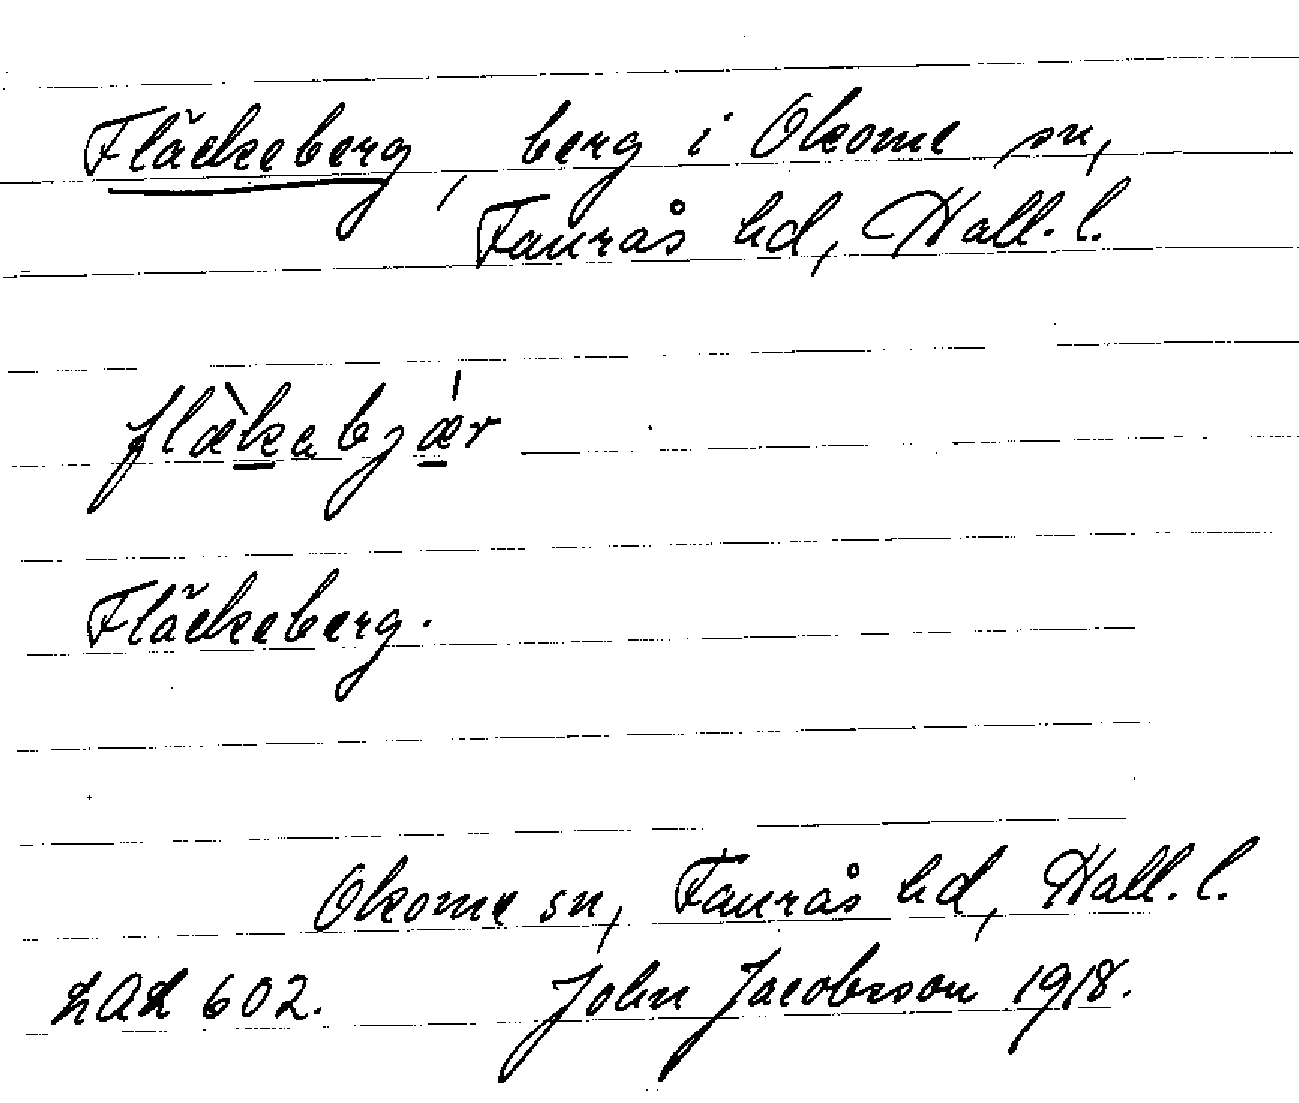 Fläckeberg, berg i Okome sn,
Faurås hd, Hall. l.
flæ̀kabjǽr
Fläckeberg.
Okome sn, Faurås hd, Hall. l.
LAL 602. John Jacobsson 1918.